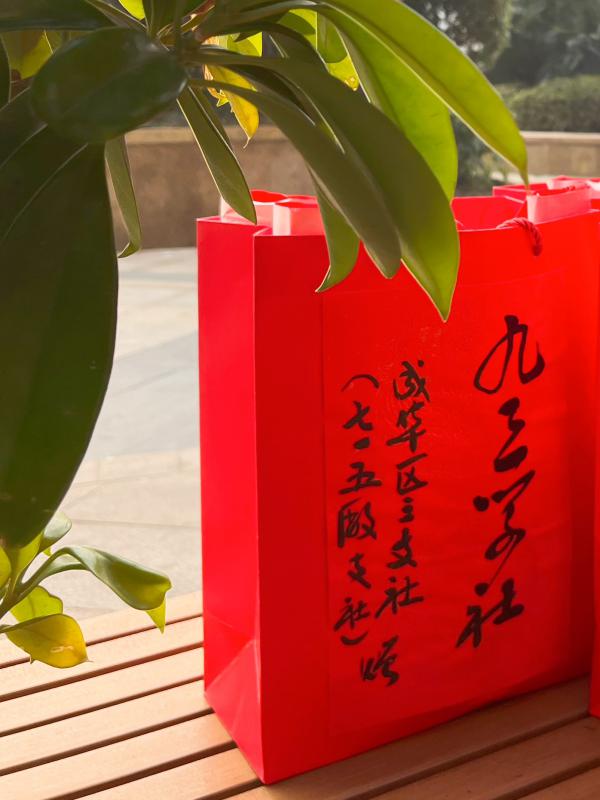 九三学社
成华区三支社
（七一五厰支社）赠